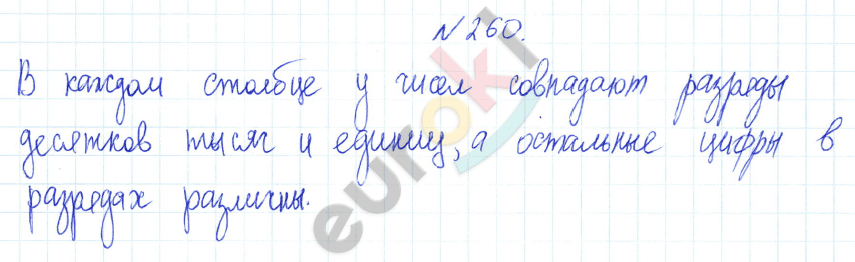 №260.
В каждом столбце у чисел совпадают разряды
десятков тысяч и единиц, а остальные цифры в
разрядах различны.
euroki